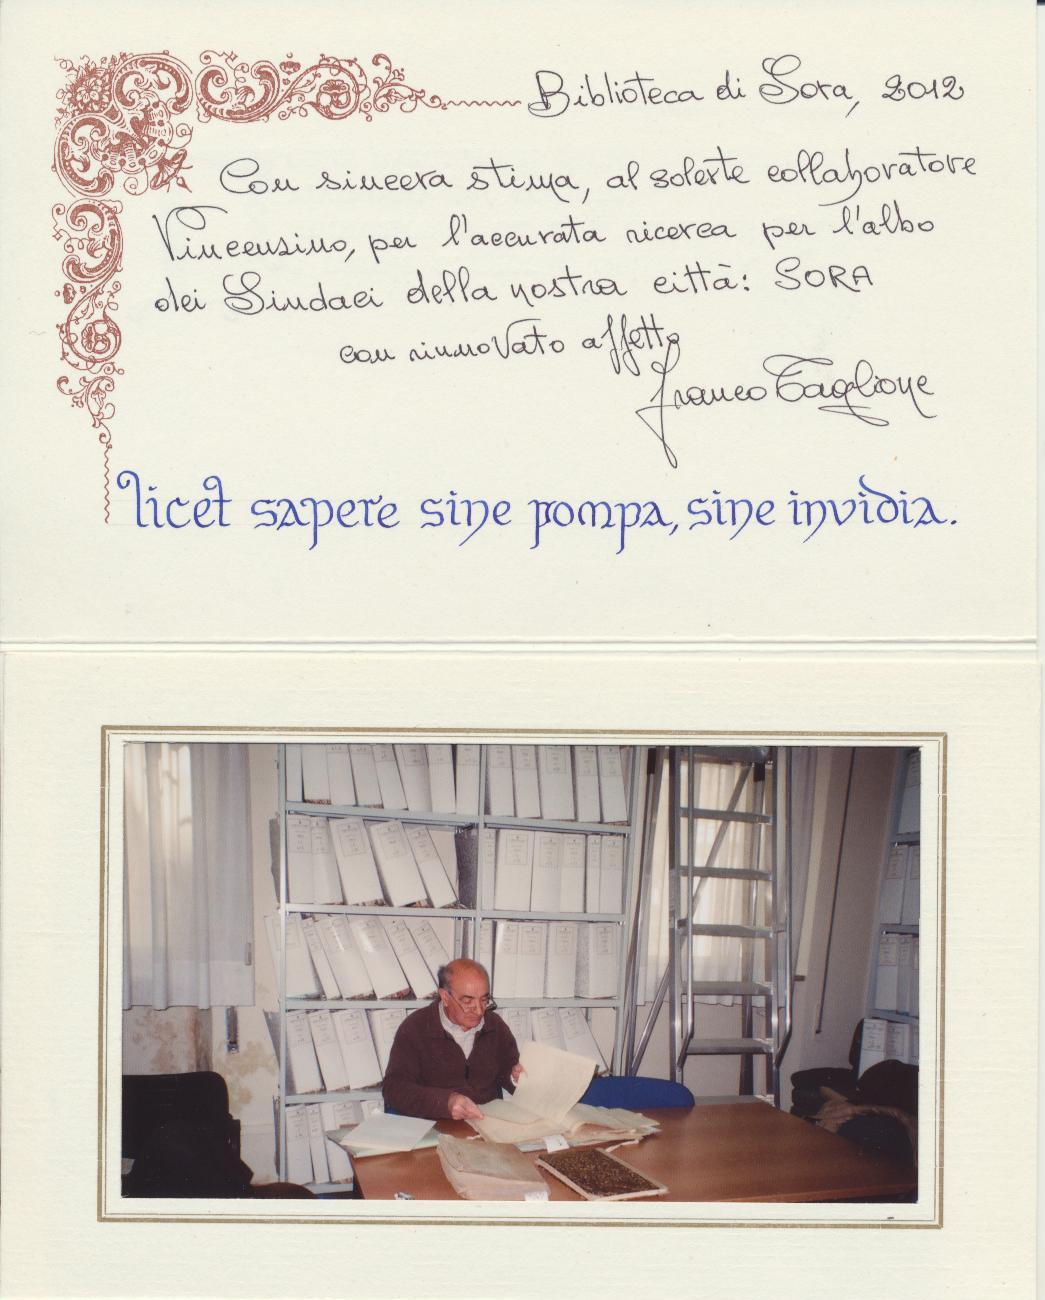 Biblioteca di Sora, 2012
Con sincera stima, al solerte collaboratore
Vincensino, per l'accurata ricerca per l'albo
dei Sindaci della nostra città: SORA
con rinnovato affetto
Franco Taglione
licet sapere sine pompa, sine invidia.